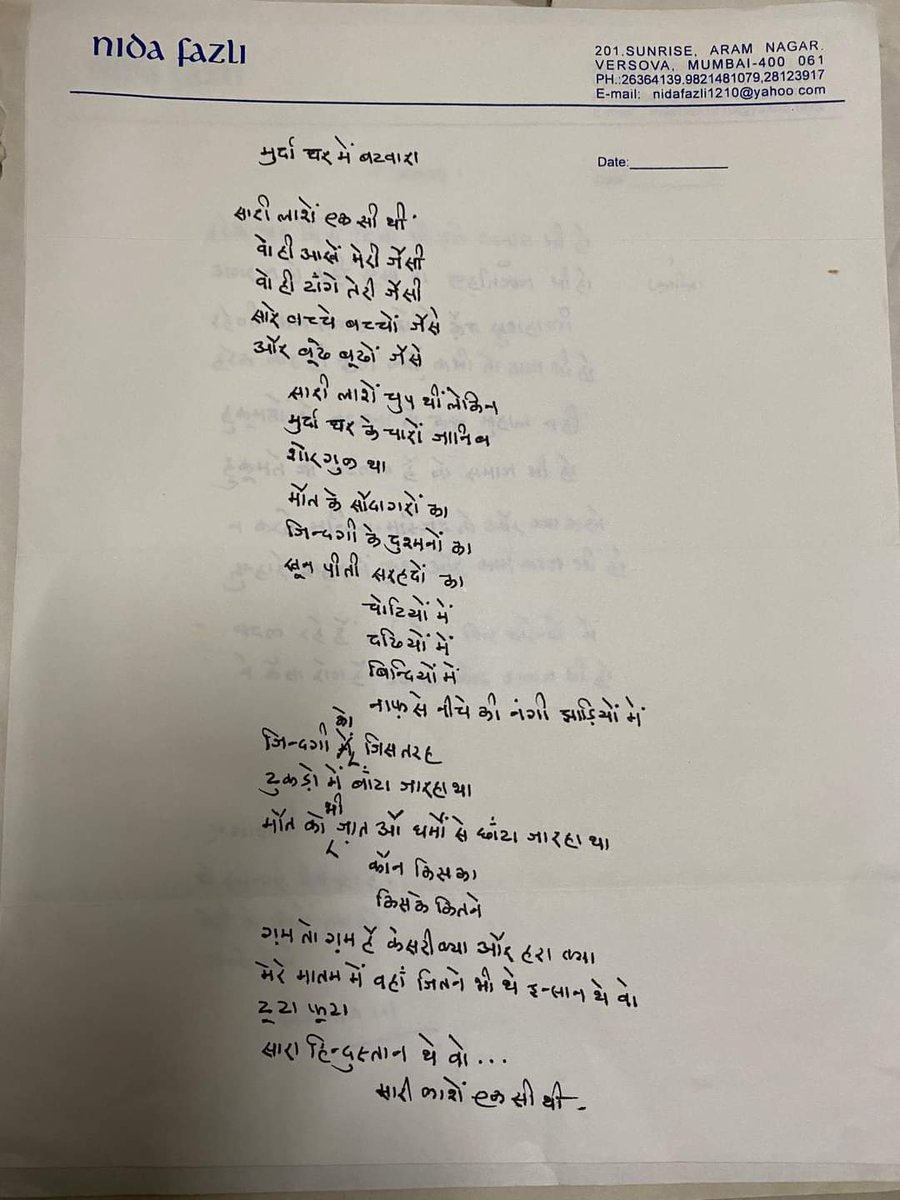 nida fazli
201.SUNRISE, ARAM NAGAR.
VERSOVA, MUMBAI-400 061
PH.:26364139.9821481079,28123917
E-mail: nidafazli1210@yahoo com
मुर्दा घर में बटवारा
Date:
सारी लाशें एक सी थीं
वो ही आखें मेरी जैसी
वो ही टाँगे तेरी जैसी
सारे बच्चे बच्चों जैसे
और बूढे बूढों जैसे
सारी लाशें चुप थीं लेकिन
मुर्दा घर के चारों जानिब
शोर गुल था
मौत के सौदागरों का
जिन्दगी के दुश्मनों का
खून पीती सरहदों का
चोटियों में
दढियों में
बिन्दियों में
नाफ़ से नीचे की नंगी झाड़ियों में
जिन्दगी को जिस तरह
टुकड़ो में बाँटा जारहा था
मौत को भी जात औ धर्मों से छाँटा जारहा था
कौन किसका
किसके कितने
ग़म तो ग़म हैं केसरी क्या और हरा क्या
मेरे मातम में वहाँ जितने भी थे इन्सान थे वो
टूटा फूटा
सारा हिन्दुस्तान थे वो ...
सारी लाशें एक सी थी -